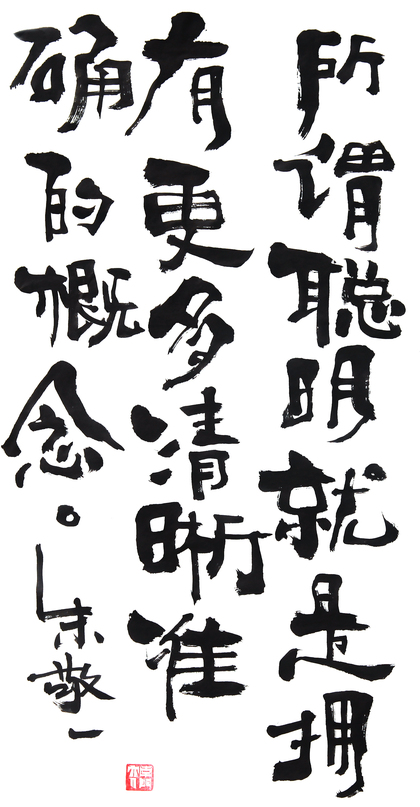 所谓聪明就是拥
有更多清晰准
确的概念。
朱敬一